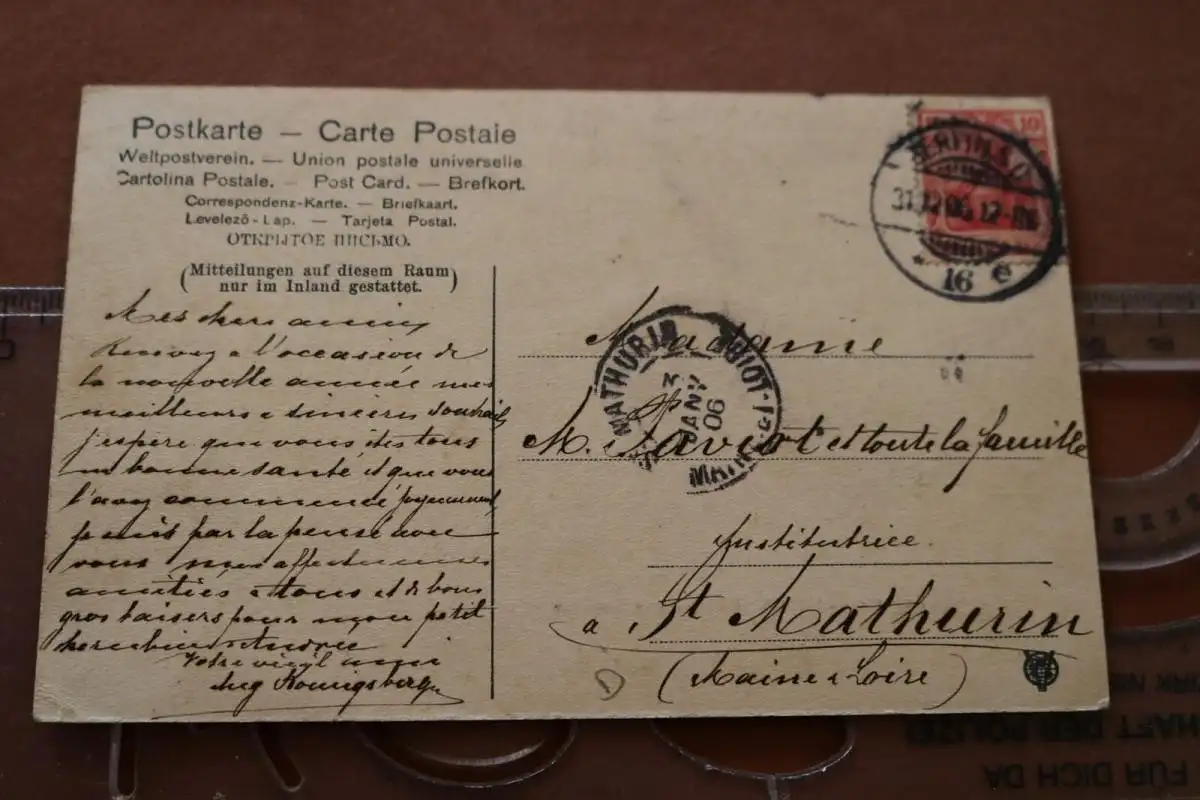 Postkarte — Carte Postale
Weltpostverein. — Union postale universelle
Cartolina Postale. — Post Card. — Brefkort.
Correspondenz-Karte. — Briefkaart.
Levelező-Lap. — Tarjeta Postal.
ОТКРЫТОЕ ПИСЬМО.
(Mitteilungen auf diesem Raum
nur im Inland gestattet.)
Mes chers amis
Recevez a l'occasion de
la nouvelle année mes
meilleurs & sincères souhaits
j'espère que vous êtes tous
en bonne santé et que vous
l'avez commencé joyeusement
je suis par la pensée avec
vous mes affectueuses
amitiés a tous et de bons
gros baisers pour mon petit
Andrée
Votre vieil ami
Aug Koenigsberg
10
BERLIN S.O.
31.12.06. 12-
* 16 e
MATHURIN
3
JANV
06
Madame
M. Saviot et toute la famille
Institutrice.
a St Mathurin
(Maine & Loire)
D
FÜR DICH DA